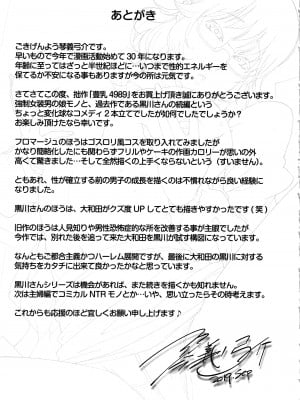 あとがき
ごきげんよう琴義弓介です。
早いもので今年で漫画活動始めて30年になります。
年齢に至ってはざっと半世紀ほど…いつまで性的エネルギーを
保てるか不安になる事もありますが今の所は元気です。
さてさてこの度、拙作「豊乳4989」をお買上げ頂き誠にありがとうございます。
強制女装男の娘モノと、過去作である黒川さんの続編という
ちょっと変化球なコメディ2本立てでしたが如何でしたでしょうか？
お楽しみ頂けたなら幸いです。
フロマージュのほうはゴスロリ風コスを取り入れてみましたが
かなり簡略化したにも関わらずフリルやケーキの作画カロリーが思いの外
高くて驚きました…そして全然描くの上手くならないという（すいません）。
ともあれ、性が確立する前の男子の成長を描くのは不慣れながら良い経験に
なりました。
黒川さんのほうは、大和田がクズ度UPしてとても描きやすかったです（笑）
旧作のほうは人見知りや男性恐怖症的な所を改善する事が主眼でしたが
今作では、別れた後を追って来た大和田を黒川が試す構図になっています。
なんともご都合主義かつハーレム展開ですが、最後に大和田の黒川に対する
気持ちをカタチに出来て良かったかなと思っています。
黒川さんシリーズは機会があれば、また続きを描くかも知れません。
次は主婦編でコミカルNTRモノとか…いや、思い立ったらその時考えます。
これからも応援のほど宜しくお願い申し上げます♪
琴義弓介